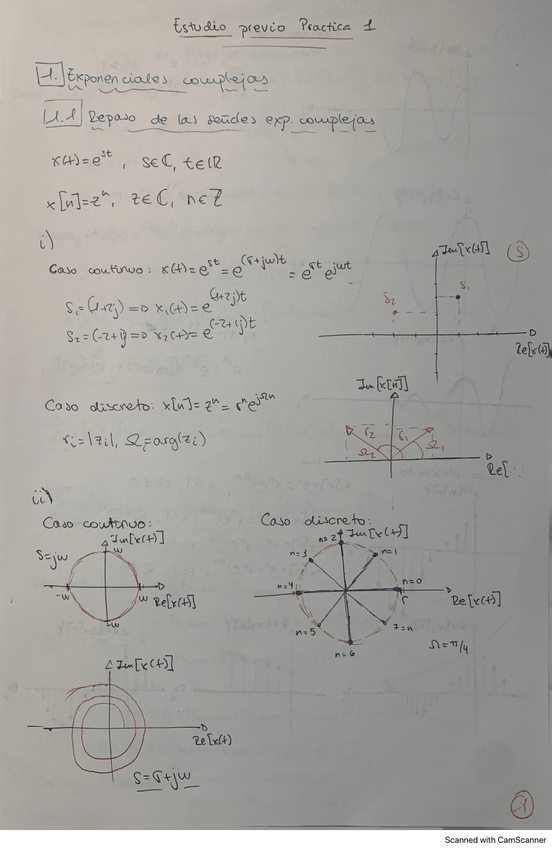 Estudio previo Practica 1
1. Exponenciales complejas
1.1 Repaso de las señales exp. complejas
x(t)=e^{st}, s∈ℂ, t∈ℝ
x[n]=z^n, z∈ℂ, n∈ℤ
i)
Caso continuo: x(t)=e^{st}=e^{(σ+jω)t}=e^{σt} e^{jωt}
S₁=(1+2j) => x₁(t)=e^{(1+2j)t}
S₂=(-2+j) => x₂(t)=e^{(-2+1j)t}
Im[x(t)]
S
S₂
S₁
Re[x(t)]
Caso discreto: x[n]=z^n=r^n e^{jΩn}
r_i=|z_i|, Ω_i=arg(z_i)
Im[x[n]]
r₂
r₁
Ω₂
Ω₁
Re[
ii)
Caso continuo:
S=jω
Im[x(t)]
ω
-ω
ω
Re[x(t)]
-ω
Caso discreto:
n=2
Im[x(t)]
n=3
n=1
n=4
n=0
r
Re[x(t)]
n=5
7=n
n=6
Ω=π/4
Im[x(t)]
Re[x(t)
S=σ+jω
1
Scanned with CamScanner